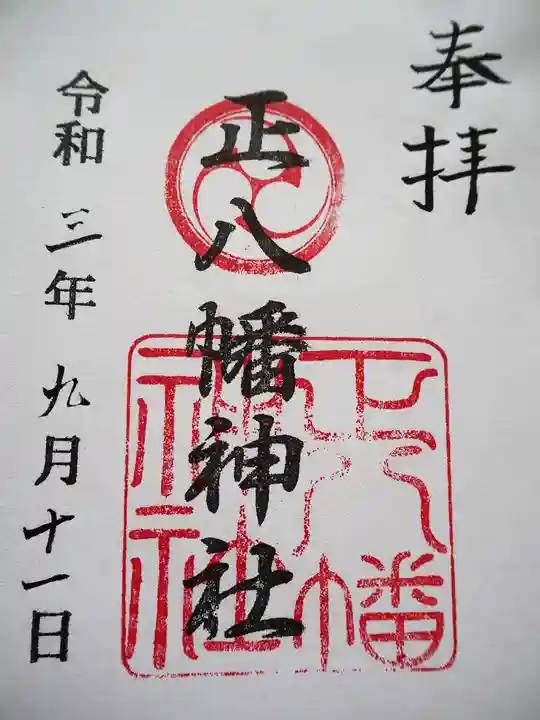 奉拝
正八幡神社
令和三年九月十一日
正八幡
神社